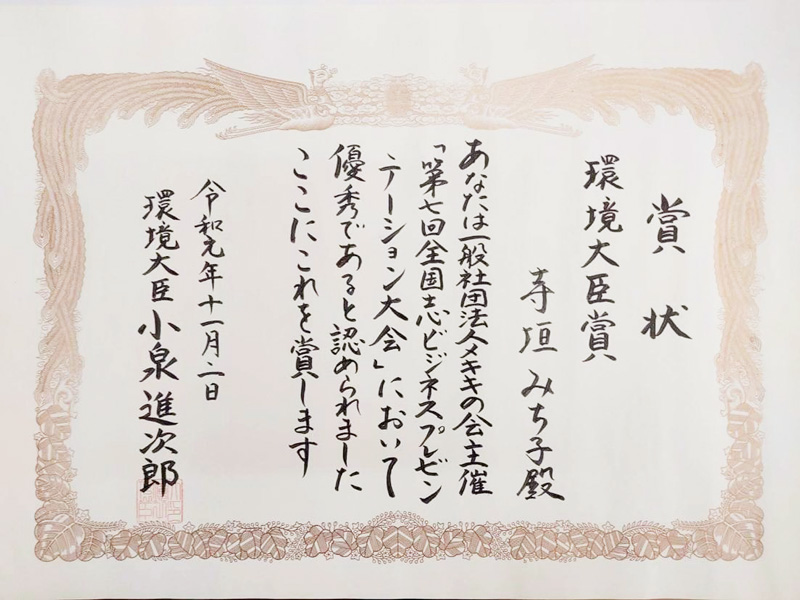 賞状
環境大臣賞
寺垣みち子殿
あなたは一般社団法人メキキの会主催
「第七回全国志ビジネスプレゼン
テーション大会」において
優秀であると認められました
ここにこれを賞します
令和元年十一月二日
環境大臣 小泉進次郎